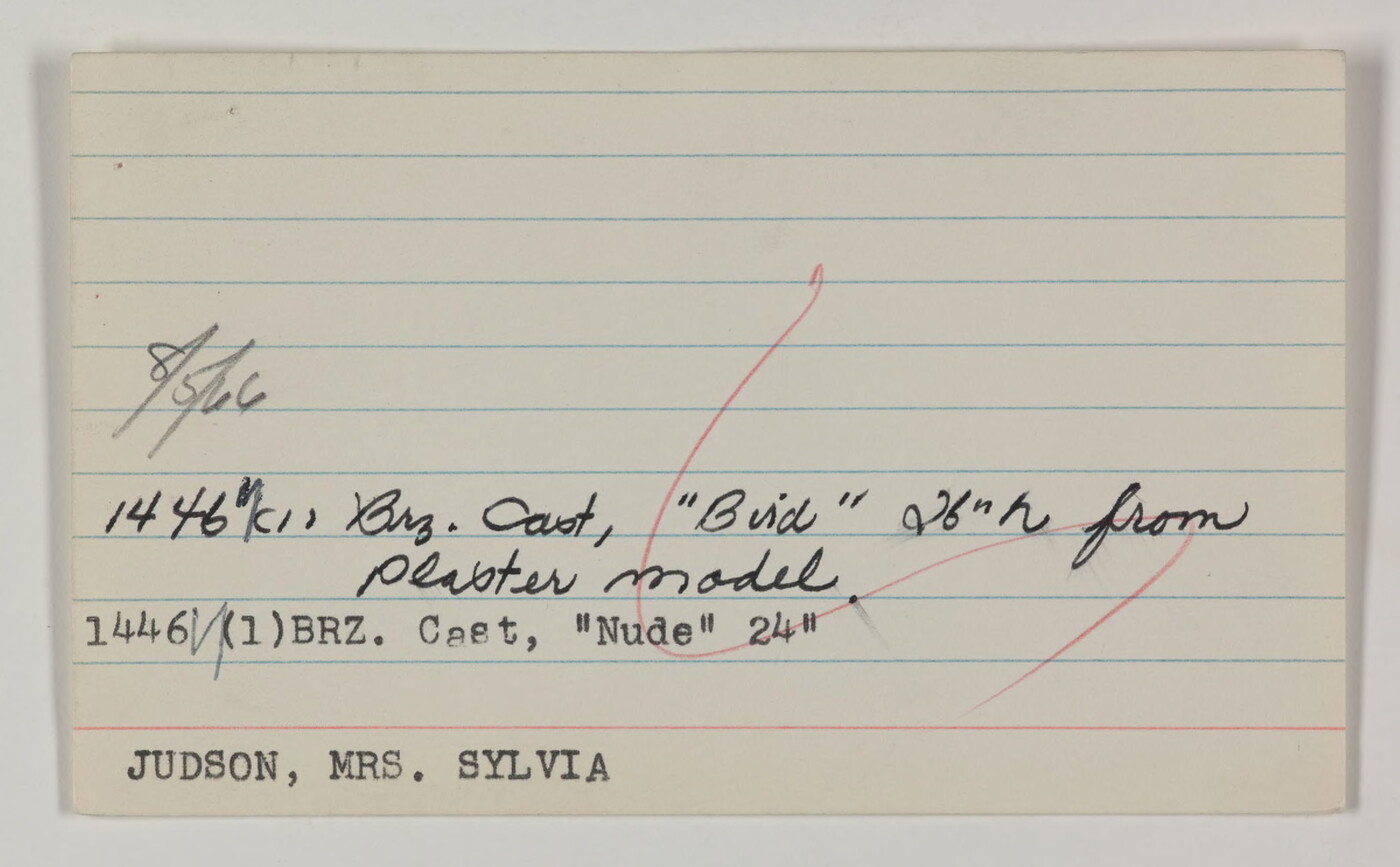 8/5/66
1446 (1) Brz. Cast, "Bird" 26"h from
plaster model.
1446 (1)BRZ. Cast, "Nude" 24"
JUDSON, MRS. SYLVIA